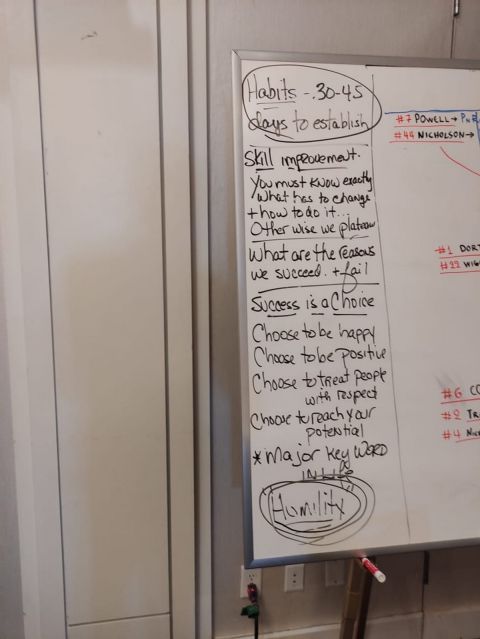 Habits - .30-45
days to establish
Skill improvement.
You must know exactly
what has to change
+ how to do it...
Other wise we plateau
What are the reasons
we succeed. + fail
Success is a Choice
Choose to be happy
Choose to be positive
Choose to treat people
with respect
Choose to reach your
potential
* Major Key WORD
IN Life
Humility
#7 POWELL→
#44 NICHOLSON→
#1 DORT
#22 WIG
#6 CO
#2 TR
#4 Nic